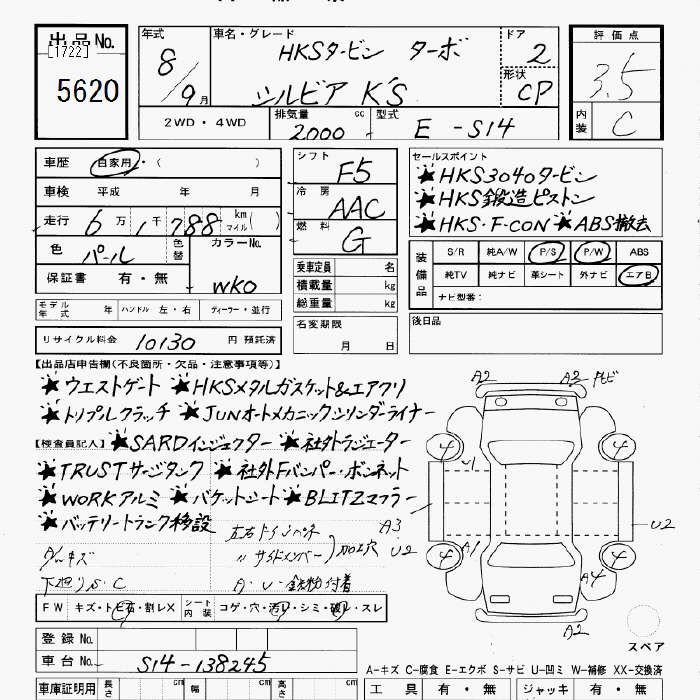 出品No.
[1722]
5620
年式 8/9月
車名・グレード HKSタービン ターボ
シルビア K'S
ドア 2
形状 CP
2WD・4WD 排気量 2000 cc 型式 E-S14
評価点 3.5
内装 C
車歴 自家用・( )
車検 平成 年 月
走行 6万1千788 km マイル( )
色 パール 色替 カラーNo. WK0
保証書 有・無
モデル年式 年 ハンドル 左・右 ディーラー・並行
リサイクル料金 10130 円 預託済
シフト F5
冷房 AAC
燃料 G
乗車定員 名
積載量 kg
総重量 kg
名変期限
月 日
セールスポイント
★HKS3040タービン
★HKS鍛造ピストン
★HKS・F-CON ★ABS撤去
装備品 S/R 純A/W P/S P/W ABS
純TV 純ナビ 革シート 外ナビ エアB
ナビ型番:
後日品
【出品店申告欄(不良箇所・欠品・注意事項等)】
★ウエストゲート ★HKSメタルガスケット&エアクリ
★トリプルクラッチ ★JUNオートメカニックシリンダーライナー
【検査員記入】★SARDインジェクター ★社外ラジエーター
★TRUSTサージタンク ★社外Fバンパー・ボンネット
★WORKアルミ ★バケットシート ★BLITZマフラー
★バッテリートランク移設
左右ドインパネ
〃 サイドメンバー 加工穴
A/Wキズ
下廻りS・C A・U・鉄粉付着
FW キズ・トビ石・割レX シート内装 コゲ・穴・汚レ・シミ・破レ・スレ
登録No.
車台No. S14-138245
車庫証明用 長さ cm 幅 cm 高さ cm
A2 A3 トビ
4 4
U1
A3
U2 U2
4 A1 4
A4
A2
スペア
A-キズ C-腐食 E-エクボ S-サビ U-凹ミ W-補修 XX-交換済
工具 有・無 ジャッキ 有・無